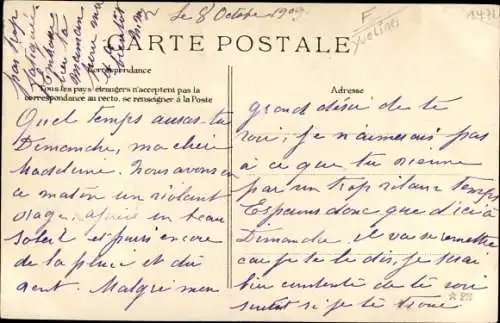 Le 8 Octobre 1909.
F
Yvelines
CARTE POSTALE
Correspondance
Tous les pays étrangers n'acceptent pas la
correspondance au recto, se renseigner à la Poste
Adresse
Quel temps auras-tu
Dimanche, ma chère
Madeleine. Nous avons eu
ce matin un violent
orage, après un beau
soleil et puis encore
de la pluie et du
vent. Malgré mon
grand désir de te
voir, je n'aimerais pas
à ce que tu vienne
par un trop vilain temps
Espérons donc que d'ici à
Dimanche il va se remettre
car je te le dis, je serai
bien contente de te voir
surtout si je te trouve
pas trop
fatiguée
Embrasse
bien ta
maman
pour moi